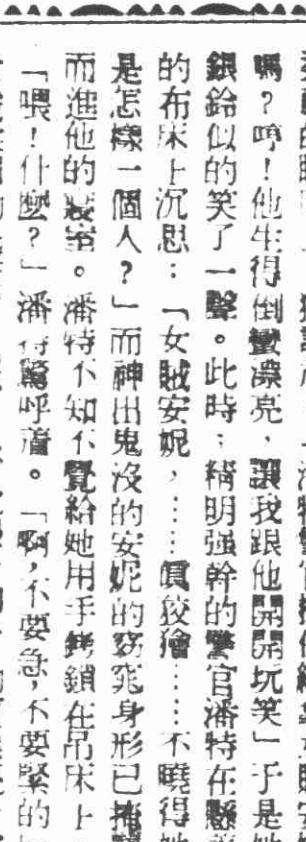 嗎？哼！他生得倒蠻漂亮，讓我跟他開開玩笑」于是她
銀鈴似的笑了一聲。此時；精明强幹的警官潘特在懸
的布床上沉思：「女賊安妮，……眞狡獪……不曉得她
是怎樣一個人？」而神出鬼沒的安妮的窈窕身形已掩
而進他的寢室。潘特不知不覺給她用手銬鎖在吊床上
「喂！什麼？」潘特驚呼着。「啊，不要急，不要緊的